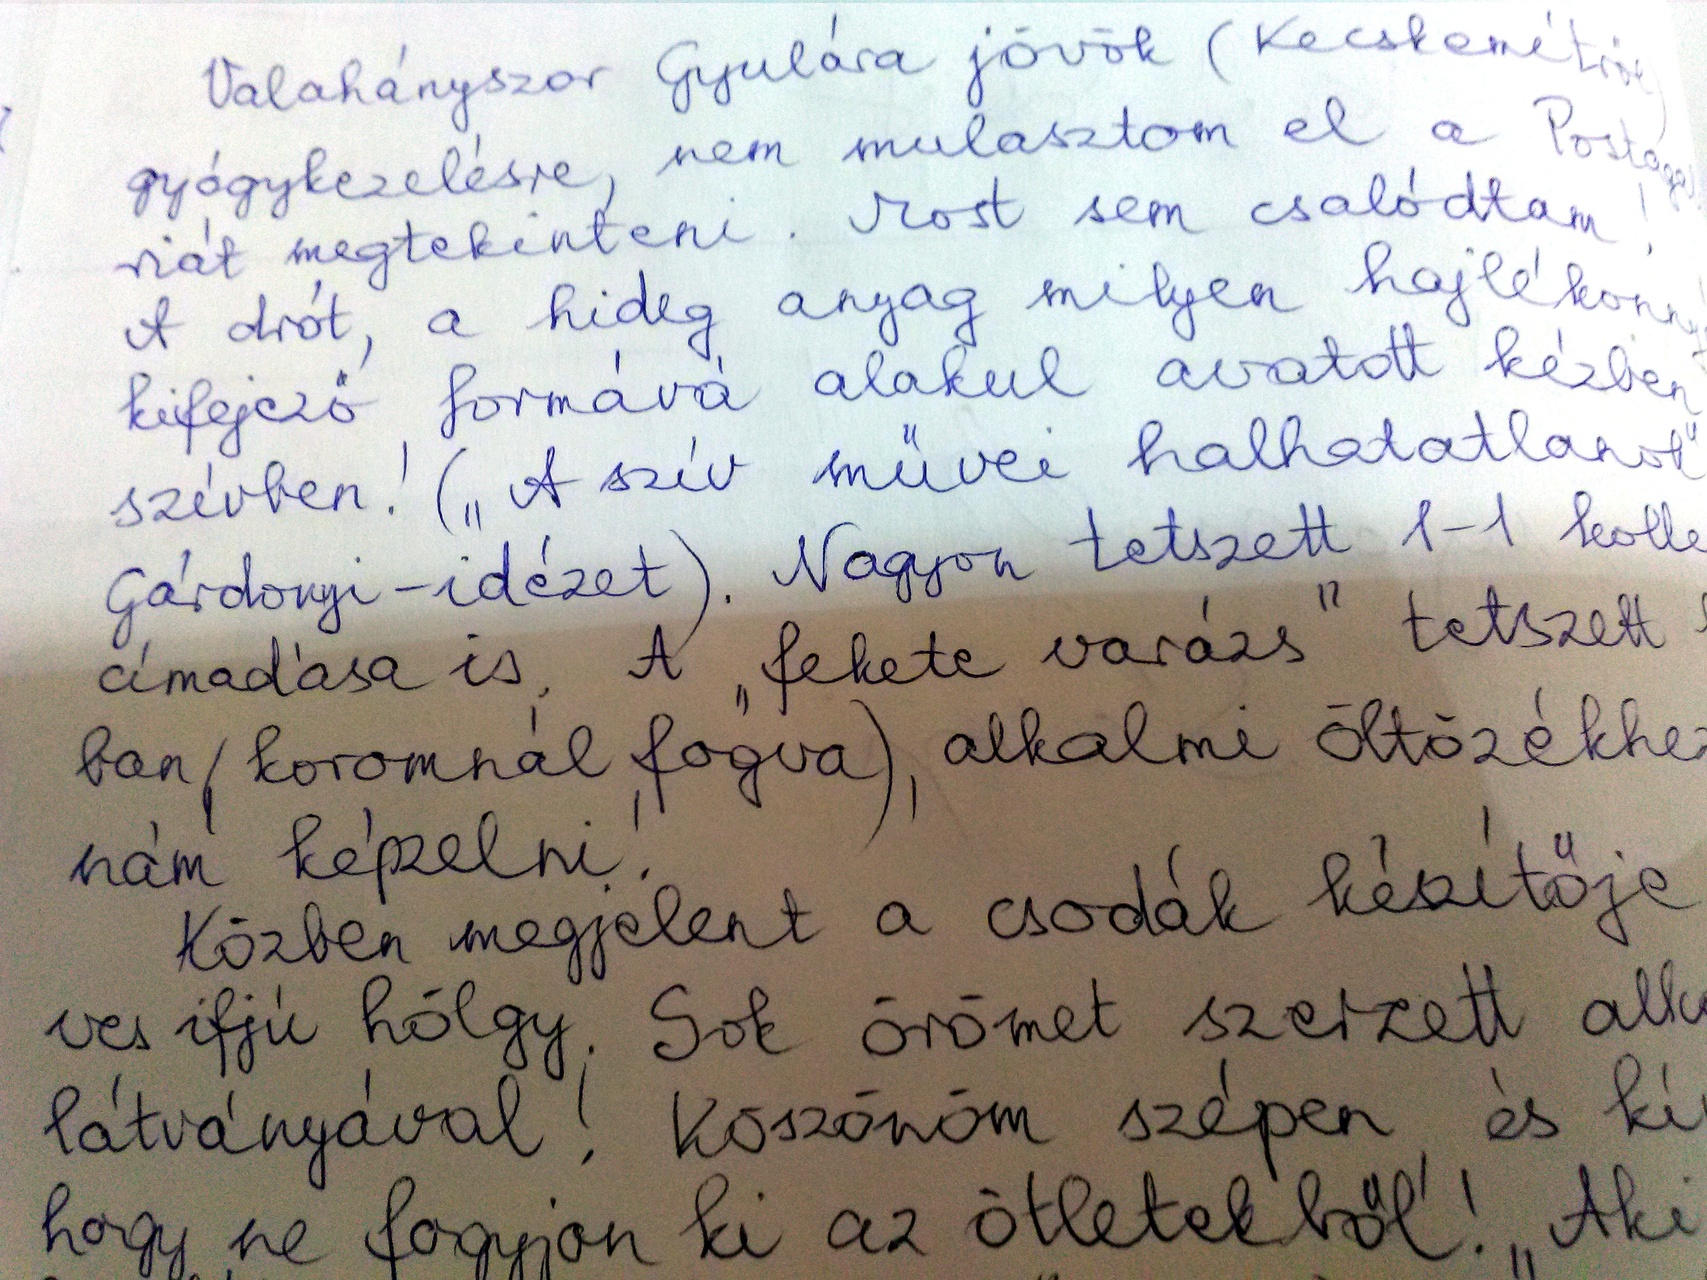 Valahányszor Gyulára jövök (Kecskemétről)
gyógykezelésre, nem mulasztom el a Postagal
riát megtekinteni. Most sem csalódtam!
A drót, a hideg anyag milyen hajlékonny
kifejező formává alakul avatott kézben
szívben! („A szív művei halhatatlanok"
Gárdonyi-idézet). Nagyon tetszett 1-1 kolle
címadása is. A „fekete varázs" tetszett
ban (koromnál fogva), alkalmi öltözékhez
nám képzelni!
Közben megjelent a csodák készítője
ves ifjú hölgy. Sok örömet szerzett alko
látványával! Köszönöm szépen, és kí
hogy ne fogyjon ki az ötletekből! „Aki